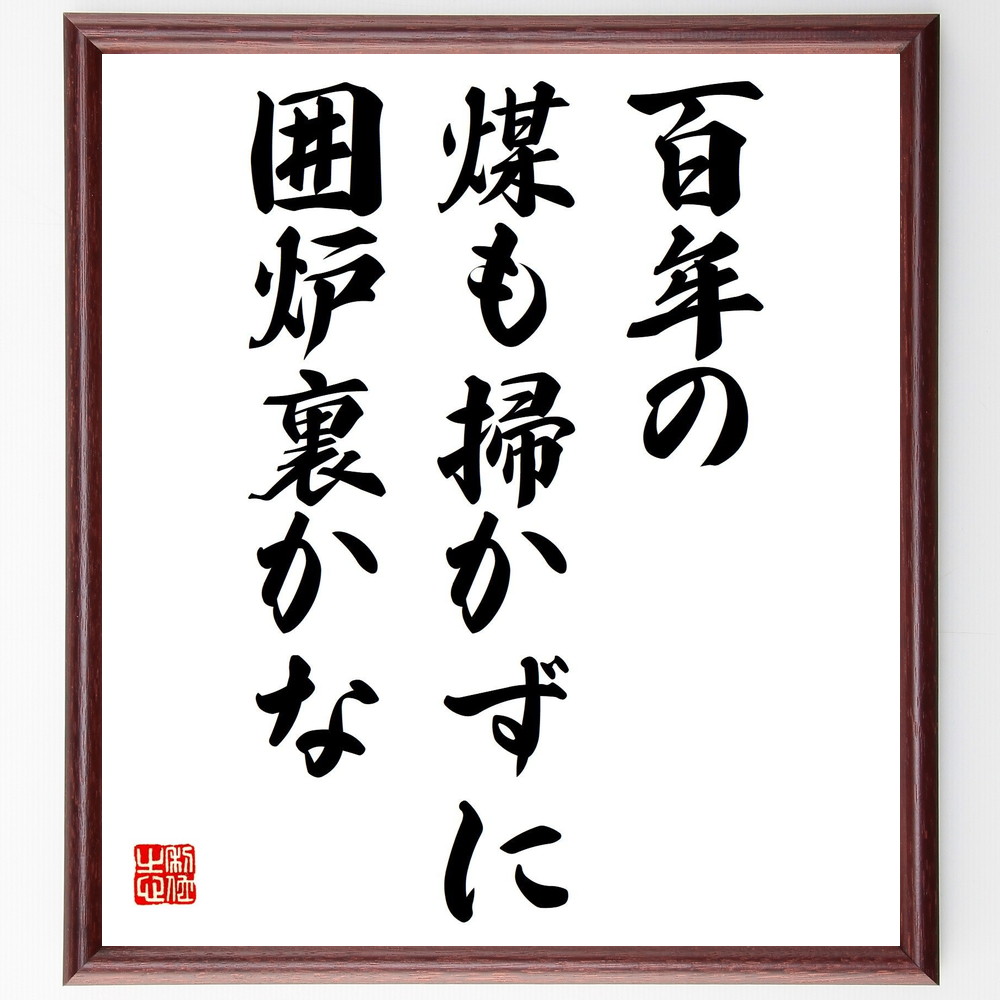 百年の
煤も掃かずに
囲炉裏かな